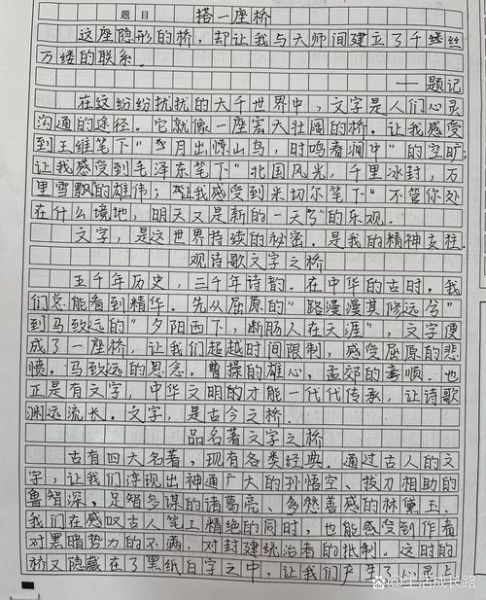 题目 搭一座桥
这座隐形的桥,却让我与大师间建立了千丝
万缕的联系。
——题记
在这纷纷扰扰的大千世界中,文字是人们心灵
沟通的途径。它就像一座宏大壮阔的桥。让我感受
到王维笔下“月出惊山鸟,时鸣春涧中”的空旷
让我感受到毛泽东笔下“北国风光,千里冰封,万
里雪飘的雄伟;让我感受到米切尔笔下“不管你处
在什么境地,明天又是新的一天”的乐观.
文字,是这世界持续的秘密.是我的精神支柱.
观诗歌文字之桥
五千年历史,三千年诗韵。在中华的古时,我
们总能看到精华。先从屈原的“路漫漫其修远兮”
到马致远的“夕阳西下,断肠人在天涯”,文字便
成了一座桥,让我们超越时间限制,感受屈原的悲
愤。马致远的思念。曹操的雄心,孟郊的孝顺.也
正是有文字,中华文明的才能一代代传承,让诗歌
渊远流长.文字,是古今之桥.
品名著文字之桥
古有四大名著,现有各类经典。通过古人的文
字,让我们浮现出神通广大的孙悟空、拔刀相助的
鲁智深,足智多谋的诸葛亮、多愁善感的林黛玉.
我们在感叹古人笔工精绝的同时,也能感受到作者
对黑暗势力的不满.对封建统治者的抵制。这时的
桥又隐藏在了黑纸白字之中,让我们产生了心灵上
@生活成长路